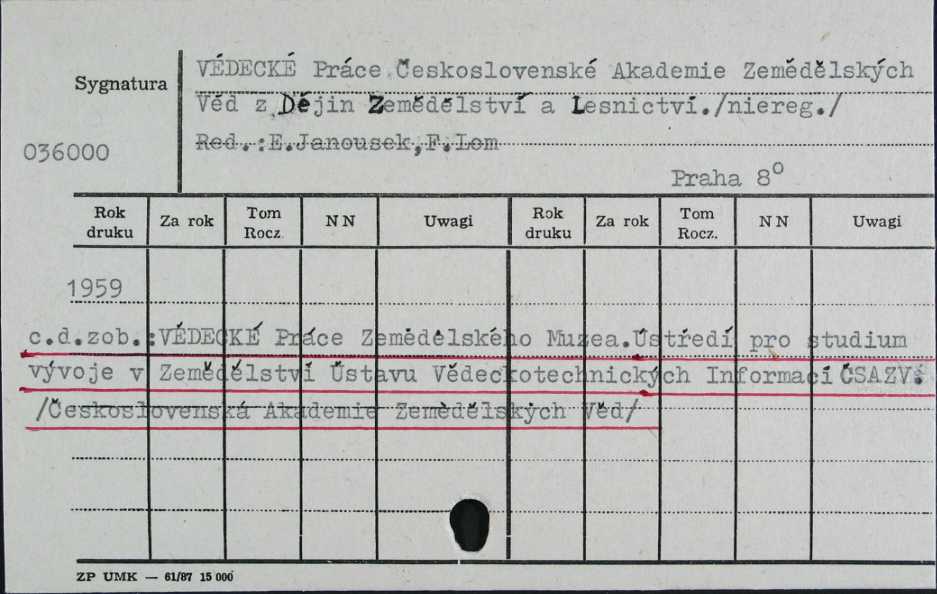 VÉDECKÉ Práce Československé Akademie Zemědělských
Sygnatura
Věd z Dějin Zemědělství a Lesnictví./niereg./
036000
Red.:E.Janousek,F.Lom
Praha 8⁰
Rok druku Za rok Tom Rocz. NN Uwagi Rok druku Za rok Tom Rocz. NN Uwagi
1959
c.d.zob.:VÉDECKÉ Práce Zemědělského Muzea.Ústředí pro studium
vývoje v Zemědélství Ústavu Vědeckotechnických Informací ČSAZV.
/Československá Akademie Zemědělských Věd/
ZP UMK — 61/87 15 000